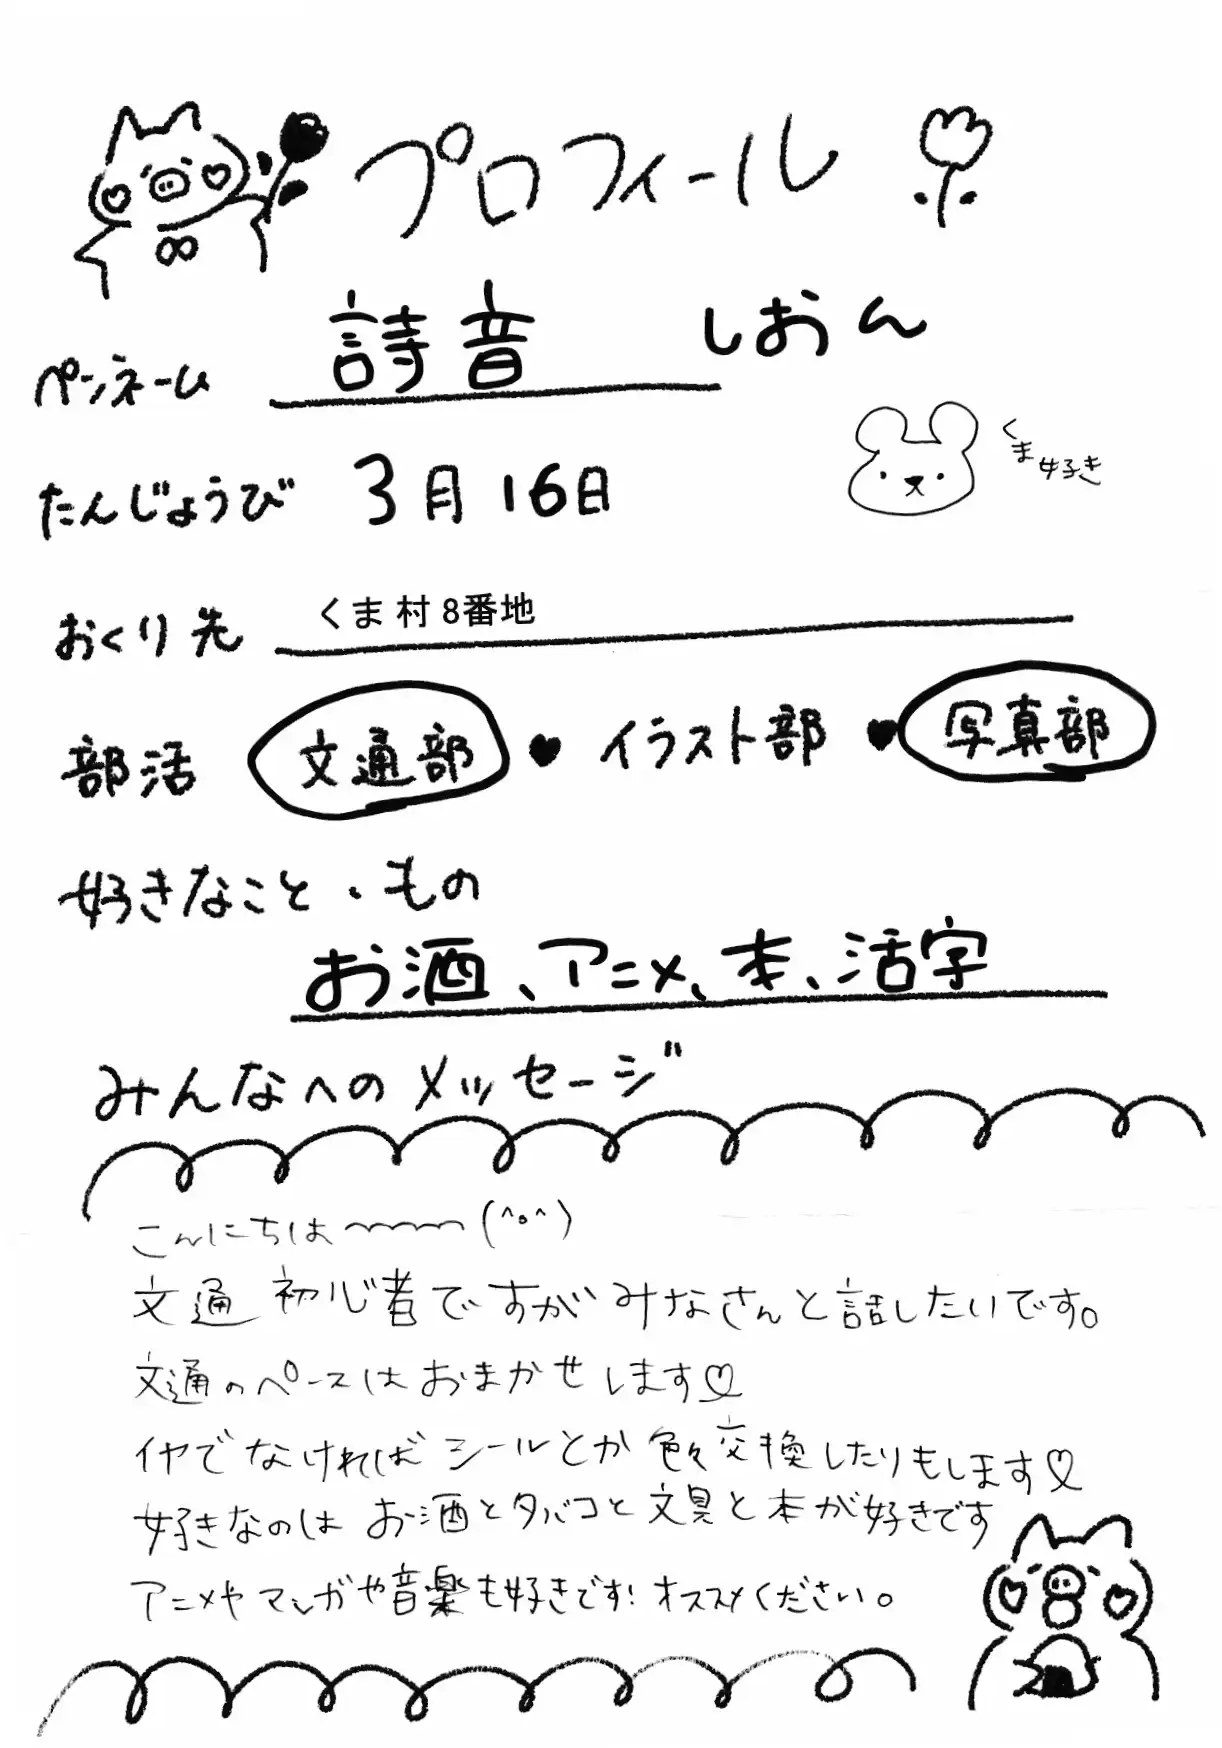 プロフィール
ペンネーム 詩音 しおん
くま好き
たんじょうび 3月16日
おくり先 くま村 8番地
部活 文通部 ♥ イラスト部 ♥ 写真部
好きなこと・もの
お酒、アニメ、本、活字
みんなへのメッセージ
こんにちは〜〜〜〜 (^o^)
文通初心者ですがみなさんと話したいです。
文通のペースはおまかせします♡
イヤでなければシールとか色々交換したりもします♡
好きなのはお酒とタバコと文具と本が好きです
アニメやマンガや音楽も好きです!オススメください。